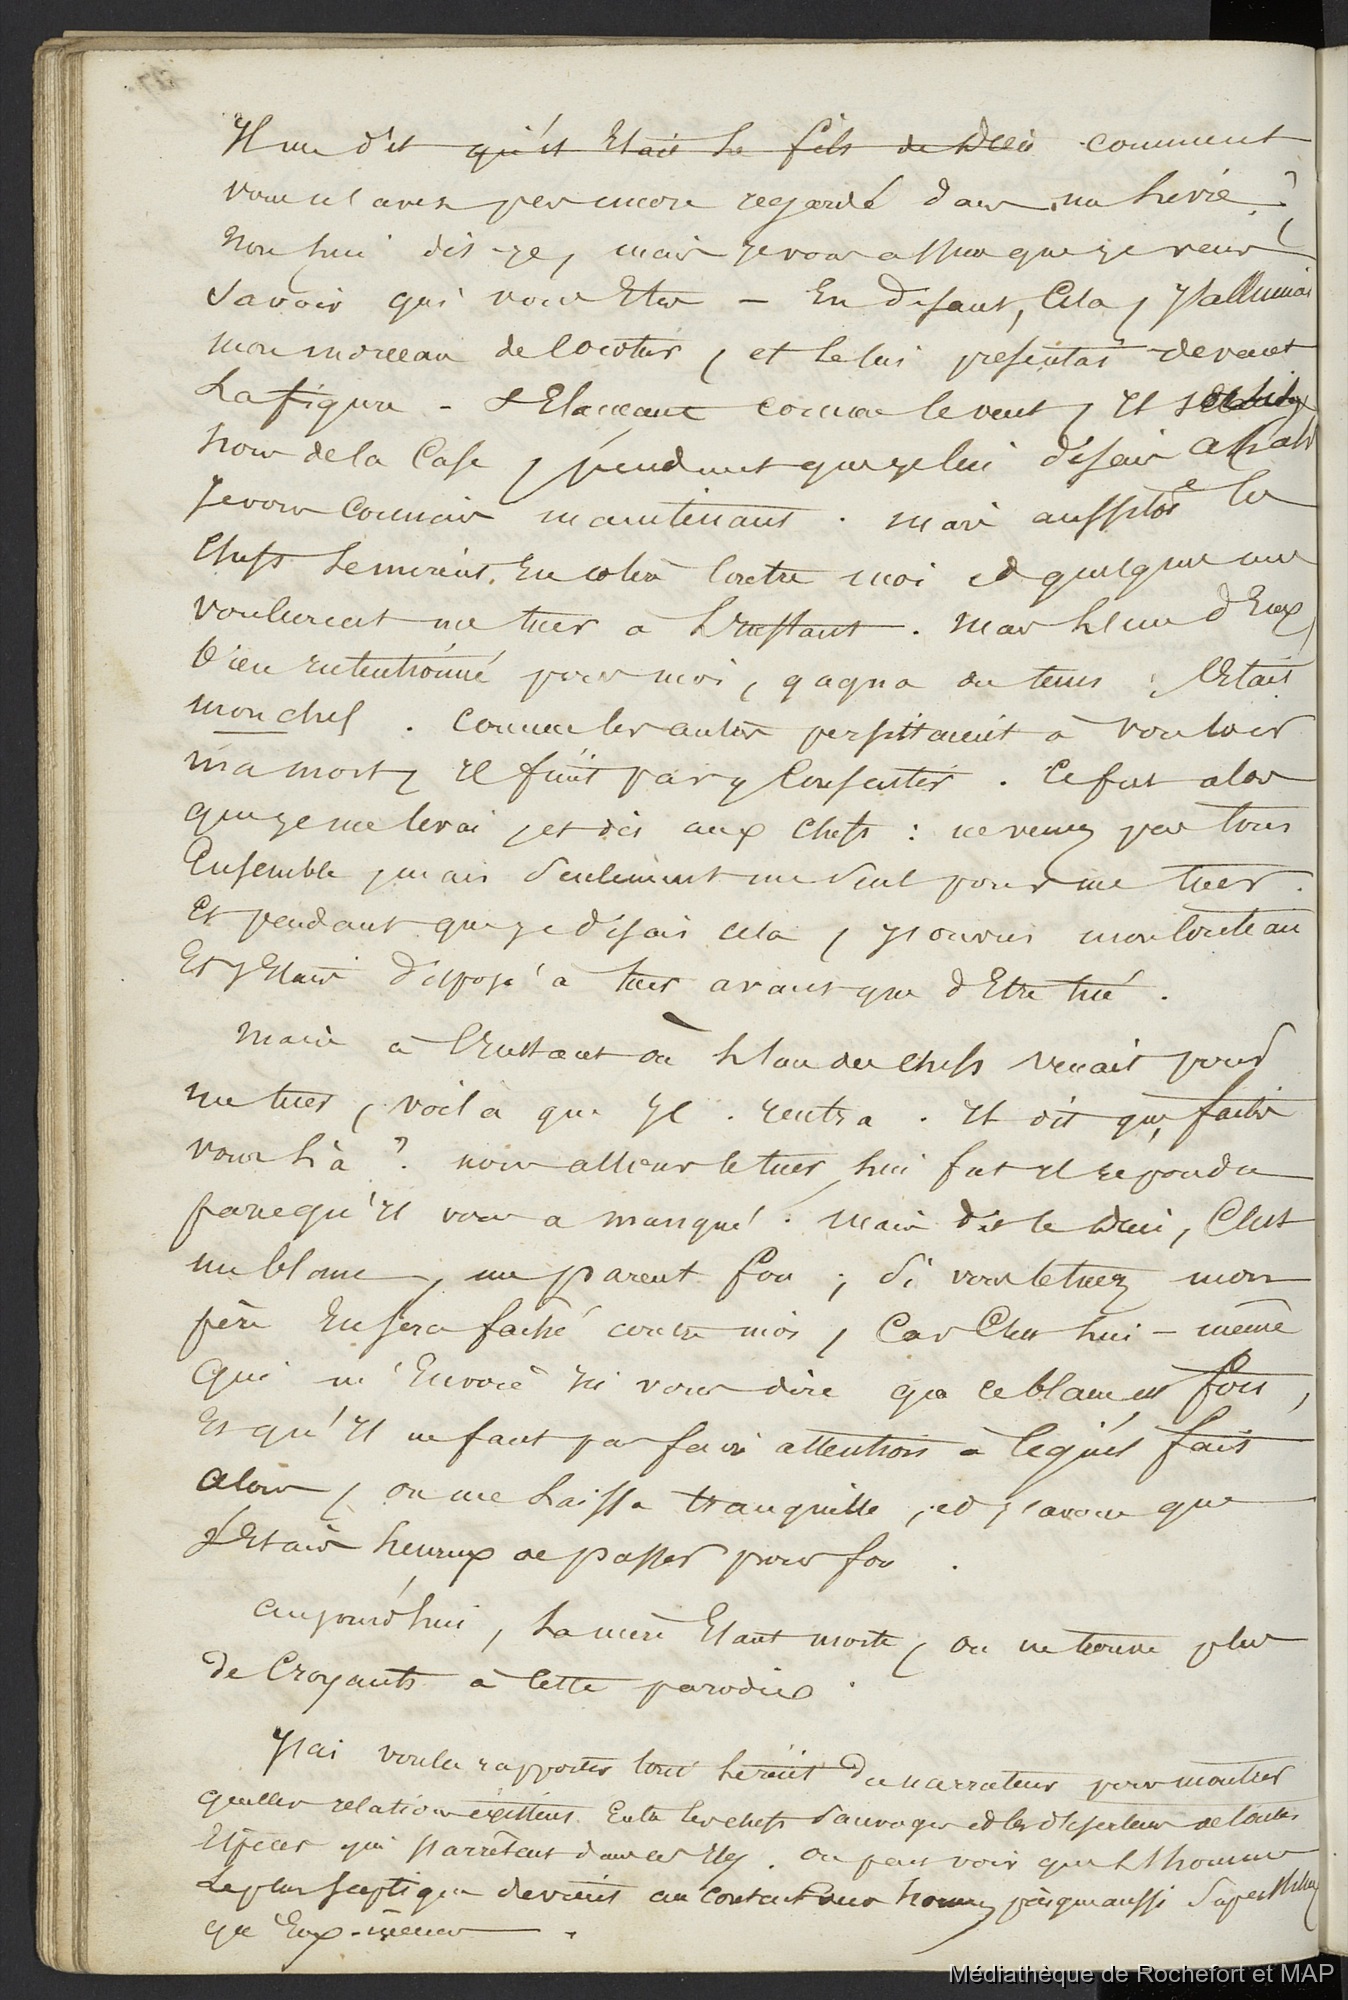 Il me dit qu'il Etait le fils de Dieu comment
vous n'avez pas encore regardé dans ma livrée ?
Non lui dis-je, mais je vous assure que je veux
savoir qui vous Etes – En disant, Cela, j'allumai
mon morceau de cocotier, et le lui présentai devant
La figure – S'Elançant comme le vent, Il
hors de la Case, pendant que je lui disais ah ah
Je vous connais maintenant . mais aussitôt les
chefs se mirent En colère Contre moi et quelques uns
voulurent me tuer à L'Instant . Mais L'un d'Eux,
bien Intentionné pour moi, gagna du tems : C'Etait
mon chef . Comme les autres persistaient à vouloir
ma mort, Il finit par y Consentir . Ce fut alors
que je me levai, et dis aux Chefs : ne venez pas tous
Ensemble, mais seulement un seul pour me tuer .
Et pendant que je disais cela, j'ouvris mon Couteau
Et j'Etais disposé à tuer avant que d'Etre tué .
Mais à l'Instant où L'un des chefs venait pour
me tuer, voilà que Il . rentra . Il dit que faites
vous Là ? nous allons le tuer, lui fut Il répondu
parce qu'Il vous a manqué . Mais dit le Dieu, C'Est
un blanc, un parent fou ; Si vous le tuez mon
père En sera fâché contre moi, Car C'Est lui-même
Qui m'Envoie Ici vous dire que ce blanc est fou,
Et qu'Il ne faut pas faire attention à ce qu'il fait
alors, on me Laissa tranquille, et j'avoue que
J'Etais heureux de passer pour fou .
Aujourd'hui, La mère Etant morte, on ne trouve plus
de Croyants à Cette parodie .
J'ai voulu rapporter tout Le récit du narrateur pour montrer
quelles relations existent Entre les chefs sauvages et les déserteurs de toutes
Espèces qui s'arrêtent dans ces Iles . On peut voir que L'homme
Le plus sceptique devient au contact des presque aussi superstitieux
qu'Eux-mêmes .
Médiathèque de Rochefort et MAP